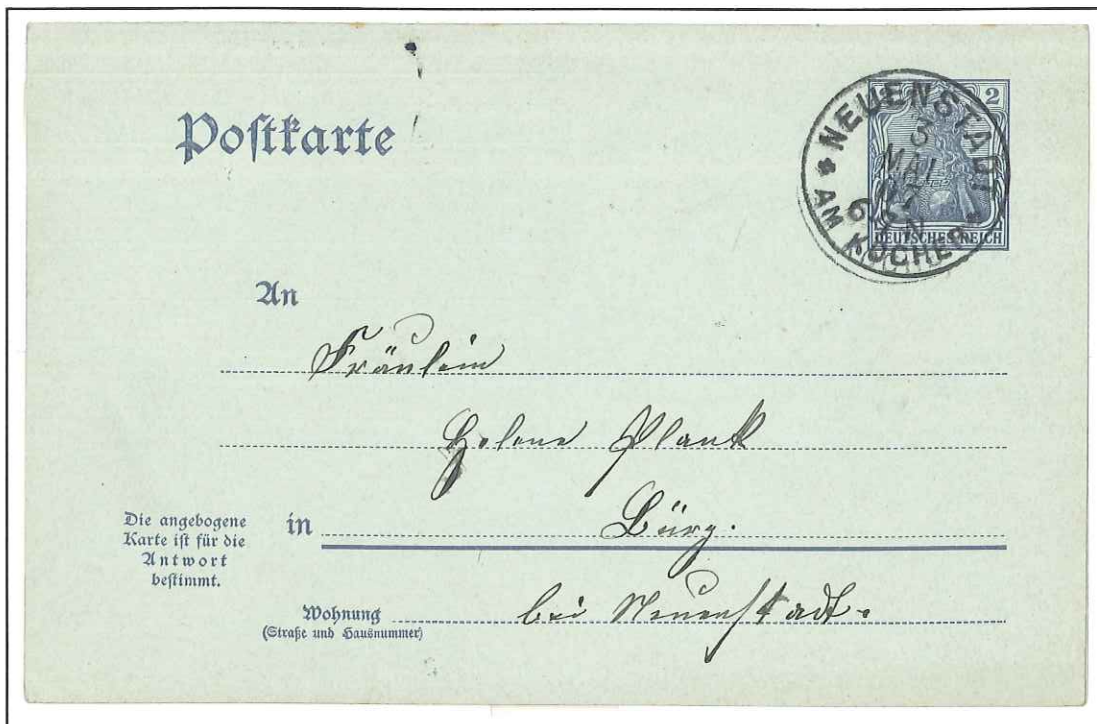 Postkarte
2
NEUENSTADT
5
MAI
6 N
AM KOCHER
DEUTSCHES REICH
An
Fräulein
Helene Plank
Die angebogene
Karte ist für die
Antwort
bestimmt.
in Bürg.
Wohnung
(Straße und Hausnummer)
bei Neuenstadt.